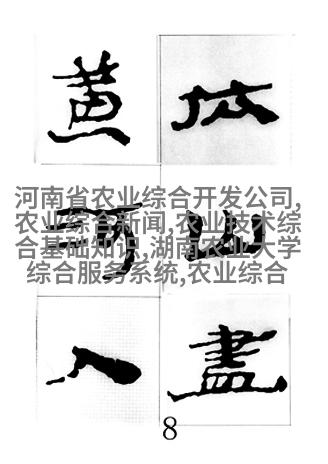 依山盡
黄河入
河南省农业综合开发公司,
农业综合新闻,农业技术综
合基础知识,湖南农业大学
综合服务系统,农业综合
8